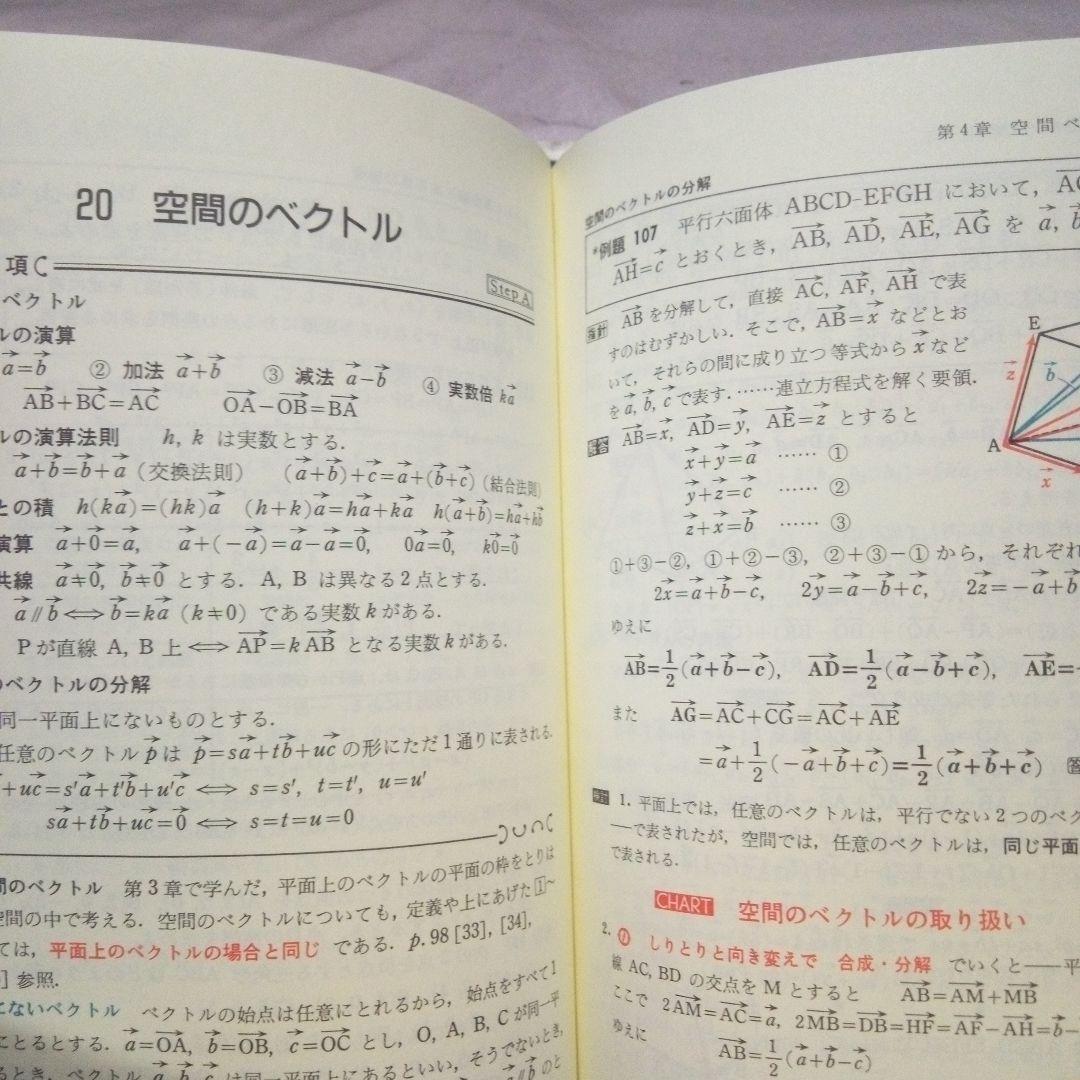 20 空間のベクトル
項
Step A
ベクトル
ルの演算
a→=b→ ② 加法 a→+b→ ③ 減法 a→-b→ ④ 実数倍 ka→
AB→+BC→=AC→ OA→-OB→=BA→
ルの演算法則 h, k は実数とする.
a→+b→=b→+a→ (交換法則) (a→+b→)+c→=a→+(b→+c→) (結合法則)
との積 h(ka→)=(hk)a→ (h+k)a→=ha→+ka→ h(a→+b→)=ha→+hb→
演算 a→+0→=a→, a→+(-a→)=a→-a→=0→, 0a→=0→, k0→=0→
共線 a→≠0→, b→≠0→ とする. A, B は異なる2点とする.
a→∥b→⟺b→=ka→ (k≠0) である実数kがある.
Pが直線 A, B 上⟺AP→=kAB→ となる実数kがある.
のベクトルの分解
同一平面上にないものとする.
任意のベクトルp→は p→=sa→+tb→+uc→の形にただ1通りに表される.
+uc→=s'a→+t'b→+u'c→ ⟺ s=s', t=t', u=u'
sa→+tb→+uc→=0→ ⟺ s=t=u=0
間のベクトル 第3章で学んだ, 平面上のベクトルの平面の枠をとりは
空間の中で考える. 空間のベクトルについても, 定義や上にあげた1~
ては, 平面上のベクトルの場合と同じ である. p.98 [33], [34],
] 参照.
にないベクトル ベクトルの始点は任意にとれるから, 始点をすべて1
ことるとする. a→=OA→, b→=OB→, c→=OC→ とし, O, A, B, C が同一平
るとき, ベクトル a→, b→, c→ は同一平面上にあるといい, そうでないとき,
第4章 空間ベ
空間のベクトルの分解
*例題 107 平行六面体 ABCD-EFGH において,
AH→=c→ とおくとき, AB→, AD→, AE→, AG→ を a→, b
指針 AB→を分解して, 直接 AC→, AF→, AH→ で表
すのはむずかしい. そこで, AB→=x→ などとお
いて, それらの間に成り立つ等式から x→ など
を a→, b→, c→ で表す. ……連立方程式を解く要領.
解答 AB→=x→, AD→=y→, AE→=z→ とすると
x→+y→=a→ …… ①
y→+z→=c→ …… ②
z→+x→=b→ …… ③
①+③-②, ①+②-③, ②+③-① から, それぞれ
2x→=a→+b→-c→, 2y→=a→-b→+c→, 2z→=-a→+b
ゆえに
AB→=1/2(a→+b→-c→), AD→=1/2(a→-b→+c→), AE→=
また AG→=AC→+CG→=AC→+AE→
=a→+1/2(-a→+b→+c→)=1/2(a→+b→+c→) 答
検討 1. 平面上では, 任意のベクトルは, 平行でない2つのベク
―で表されたが, 空間では, 任意のベクトルは, 同じ平面
で表される.
CHART 空間のベクトルの取り扱い
2. しりとりと向き変えで 合成・分解 でいくと――平
線 AC, BD の交点を M とすると AB→=AM→+MB→
ここで 2AM→=AC→=a→, 2MB→=DB→=HF→=AF→-AH→=b→-
ゆえに
AB→=1/2(a→+b→-c→)
E
z→
b→
A
x→